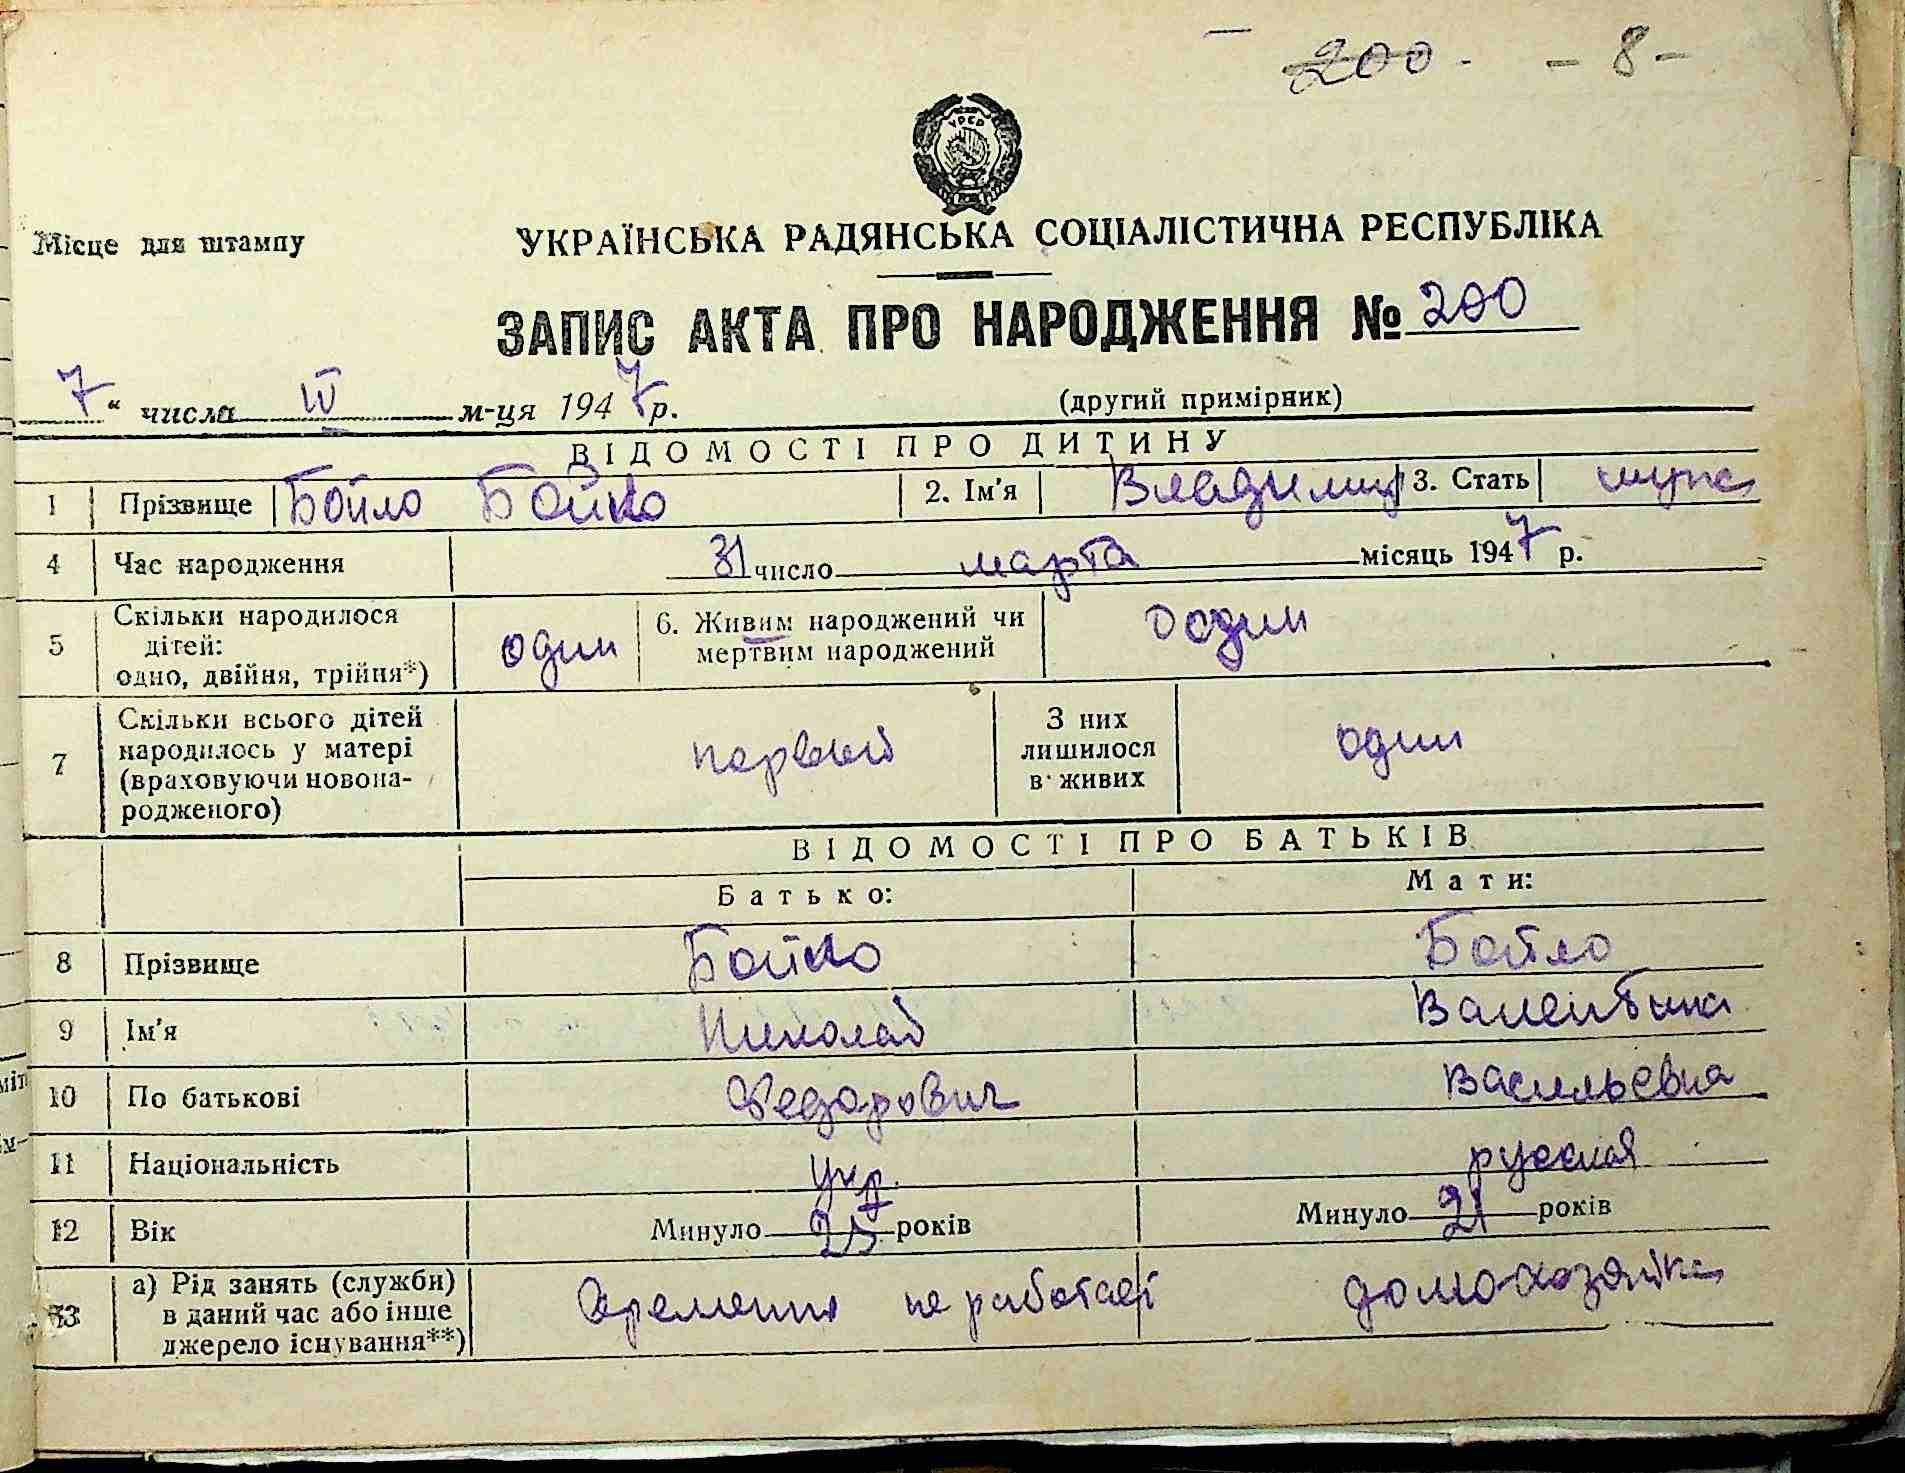 200 - - 8 -
УРСР
Місце для штампу
УКРАЇНСЬКА РАДЯНСЬКА СОЦІАЛІСТИЧНА РЕСПУБЛІКА
ЗАПИС АКТА ПРО НАРОДЖЕННЯ № 200
7 " числа IV м-ця 1947 р. (другий примірник)
ВІДОМОСТІ ПРО ДИТИНУ
1 Прізвище Бойло Бойко 2. Ім'я Владимир 3. Стать муж
4 Час народження 31 число марта місяць 1947 р.
5 Скільки народилося дітей: одно, двійня, трійня*) один 6. Живим народжений чи мертвим народжений один
7 Скільки всього дітей народилось у матері (враховуючи новонародженого) первый З них лишилося в живих один
ВІДОМОСТІ ПРО БАТЬКІВ
Батько: Мати:
8 Прізвище Бойко Бойло
9 Ім'я Николай Валентина
10 По батькові Федорович Васильевна
11 Національність укр. русская
12 Вік Минуло 25 років Минуло 21 років
13 а) Рід занять (служби) в даний час або інше джерело існування**) Временно не работает домохозяйка